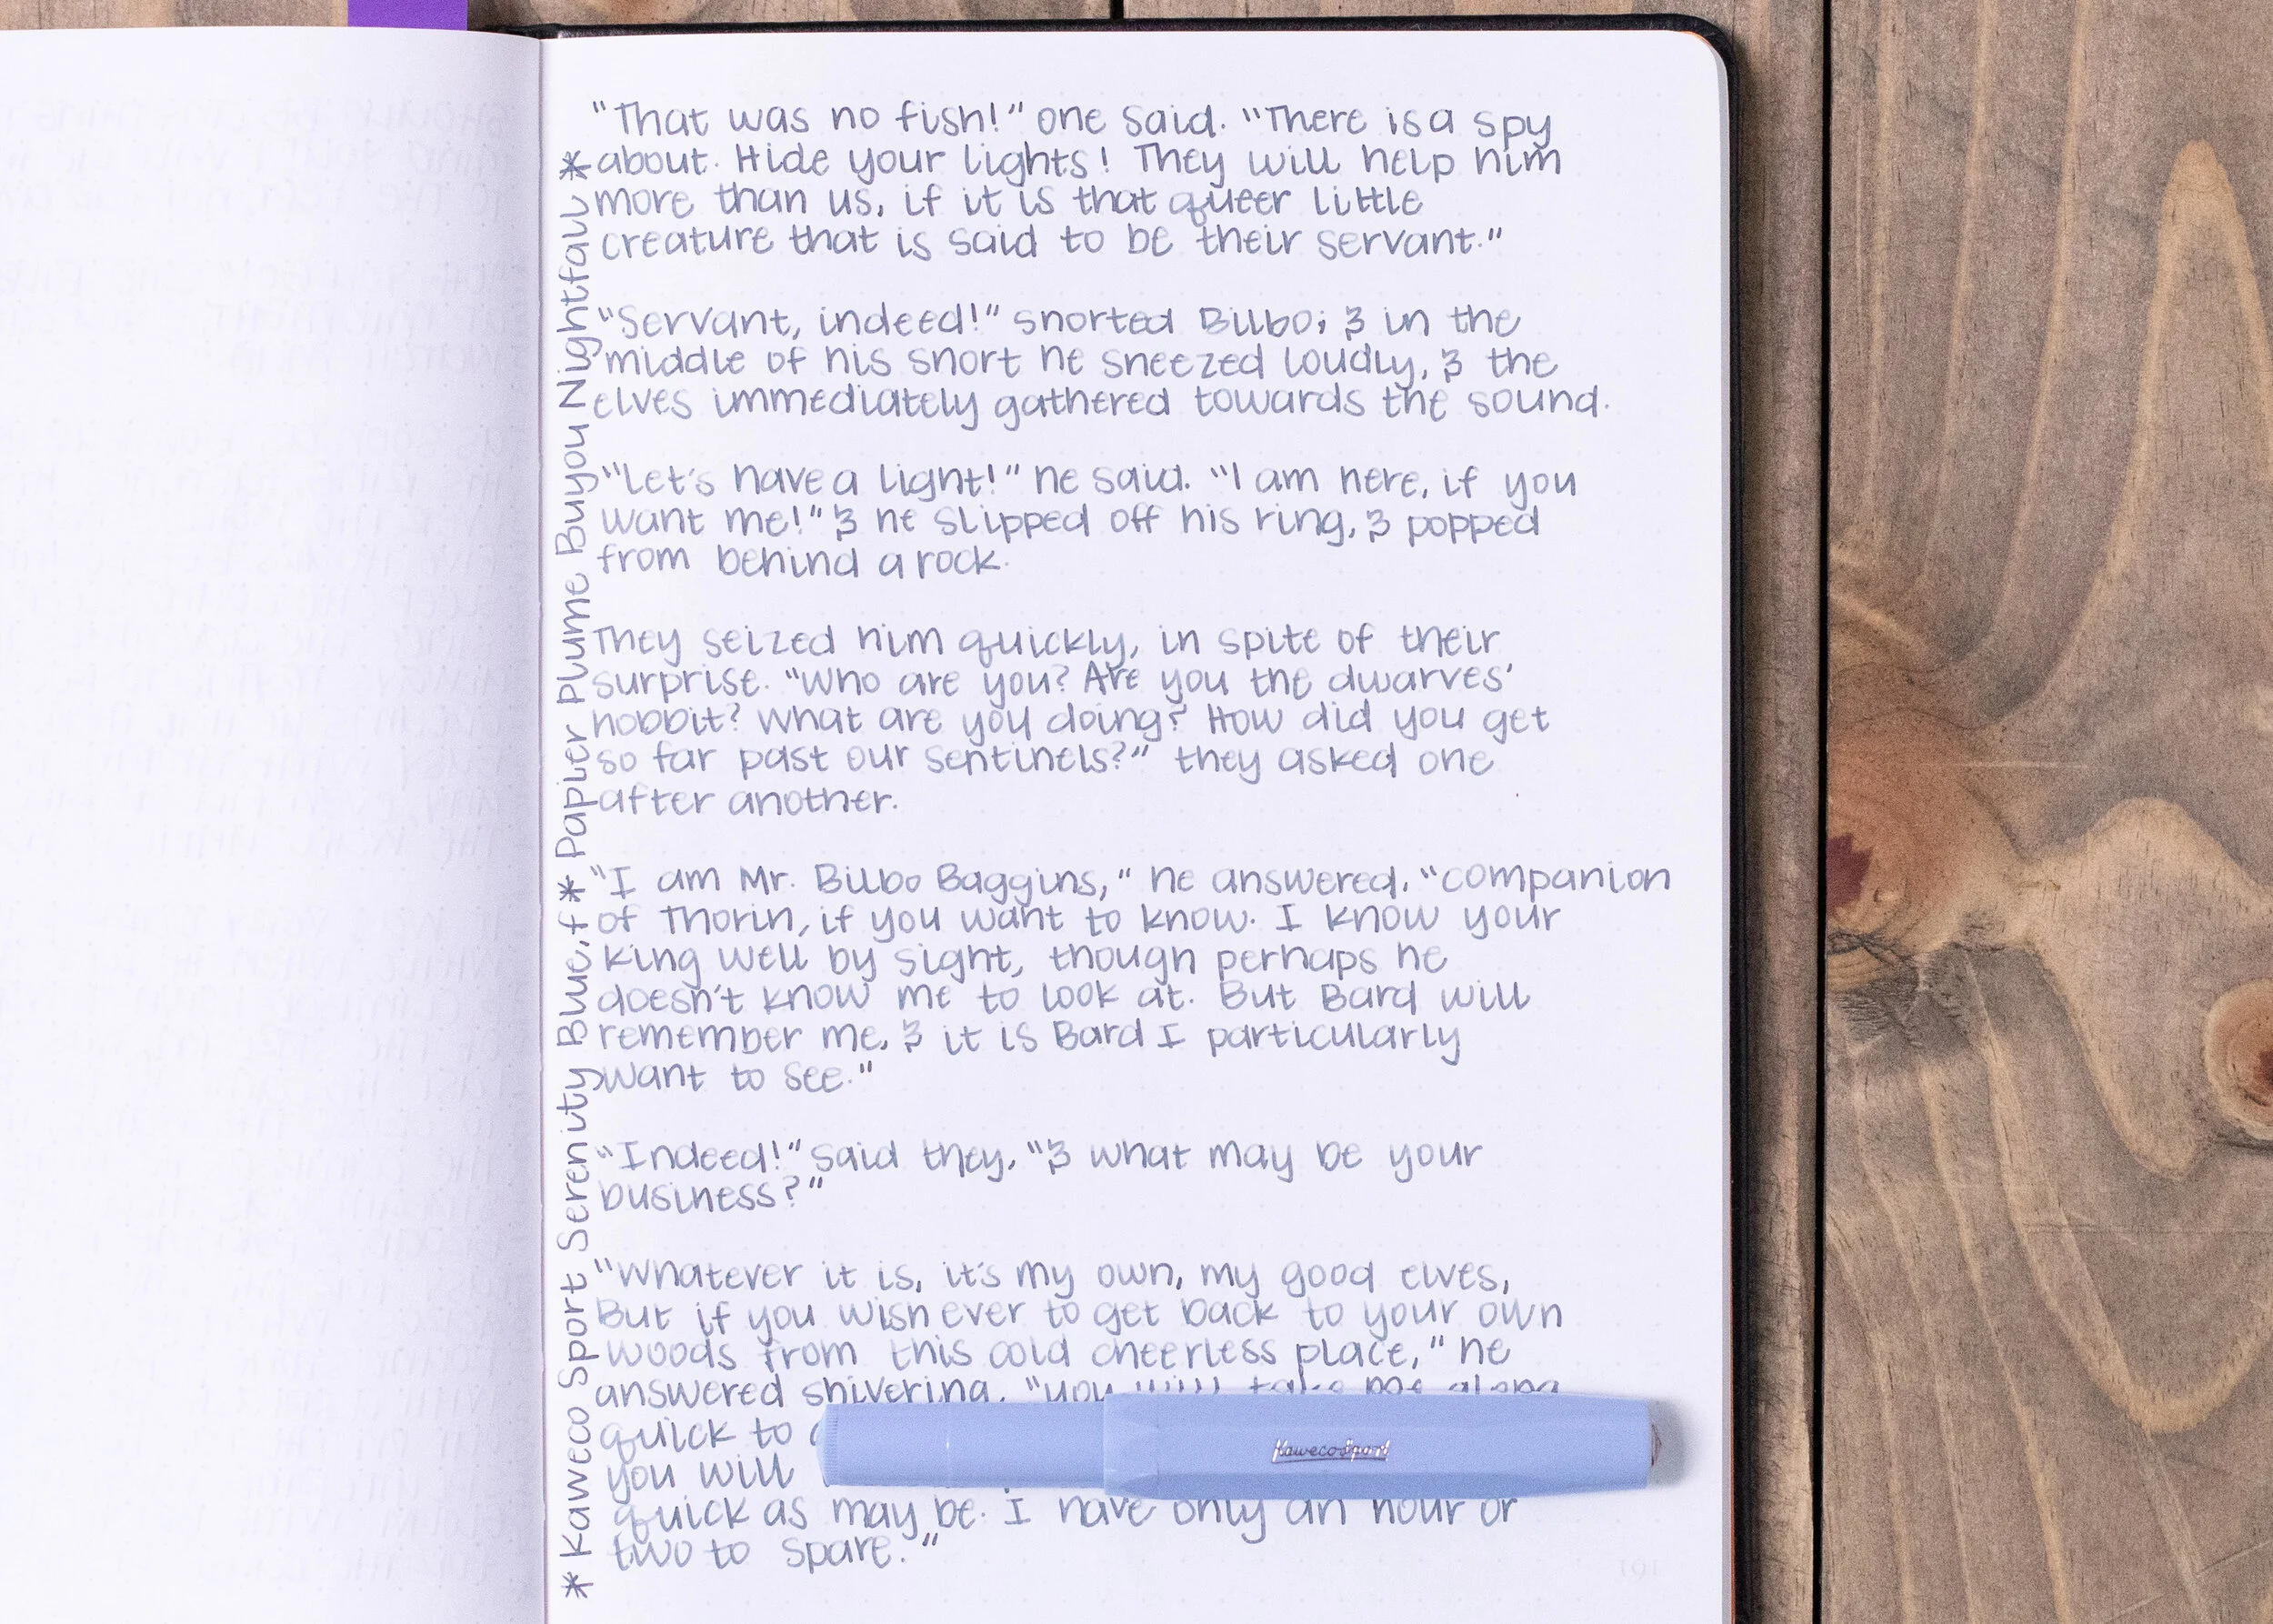 "That was no fish!" one said. "There is a spy
about. Hide your lights! They will help him
more than us, if it is that queer little
creature that is said to be their servant."
"Servant, indeed!" snorted Bilbo; & in the
middle of his snort he sneezed loudly, & the
elves immediately gathered towards the sound.
"Let's have a light!" he said. "I am here, if you
want me!" & he slipped off his ring, & popped
from behind a rock.
They seized him quickly, in spite of their
surprise. "Who are you? Are you the dwarves'
hobbit? What are you doing? How did you get
so far past our sentinels?" they asked one
after another.
"I am Mr. Bilbo Baggins," he answered, "companion
of Thorin, if you want to know. I know your
king well by sight, though perhaps he
doesn't know me to look at. But Bard will
remember me, & it is Bard I particularly
want to see."
"Indeed!" said they, "& what may be your
business?"
"Whatever it is, it's my own, my good elves,
But if you wish ever to get back to your own
woods from this cold cheerless place," he
answered shivering, "you will take me along
quick to
you will
quick as may be. I have only an hour or
two to spare."
* Kaweco Sport Serenity Blue, f * Papier Plume Buyou Nightfall *
KawecoSport
191